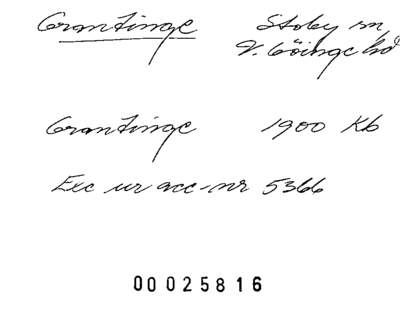 Grantinge Stoby sn
V. Göinge hd
Grantinge 1900 Kb
Exc ur acc-nr 5366
00025816